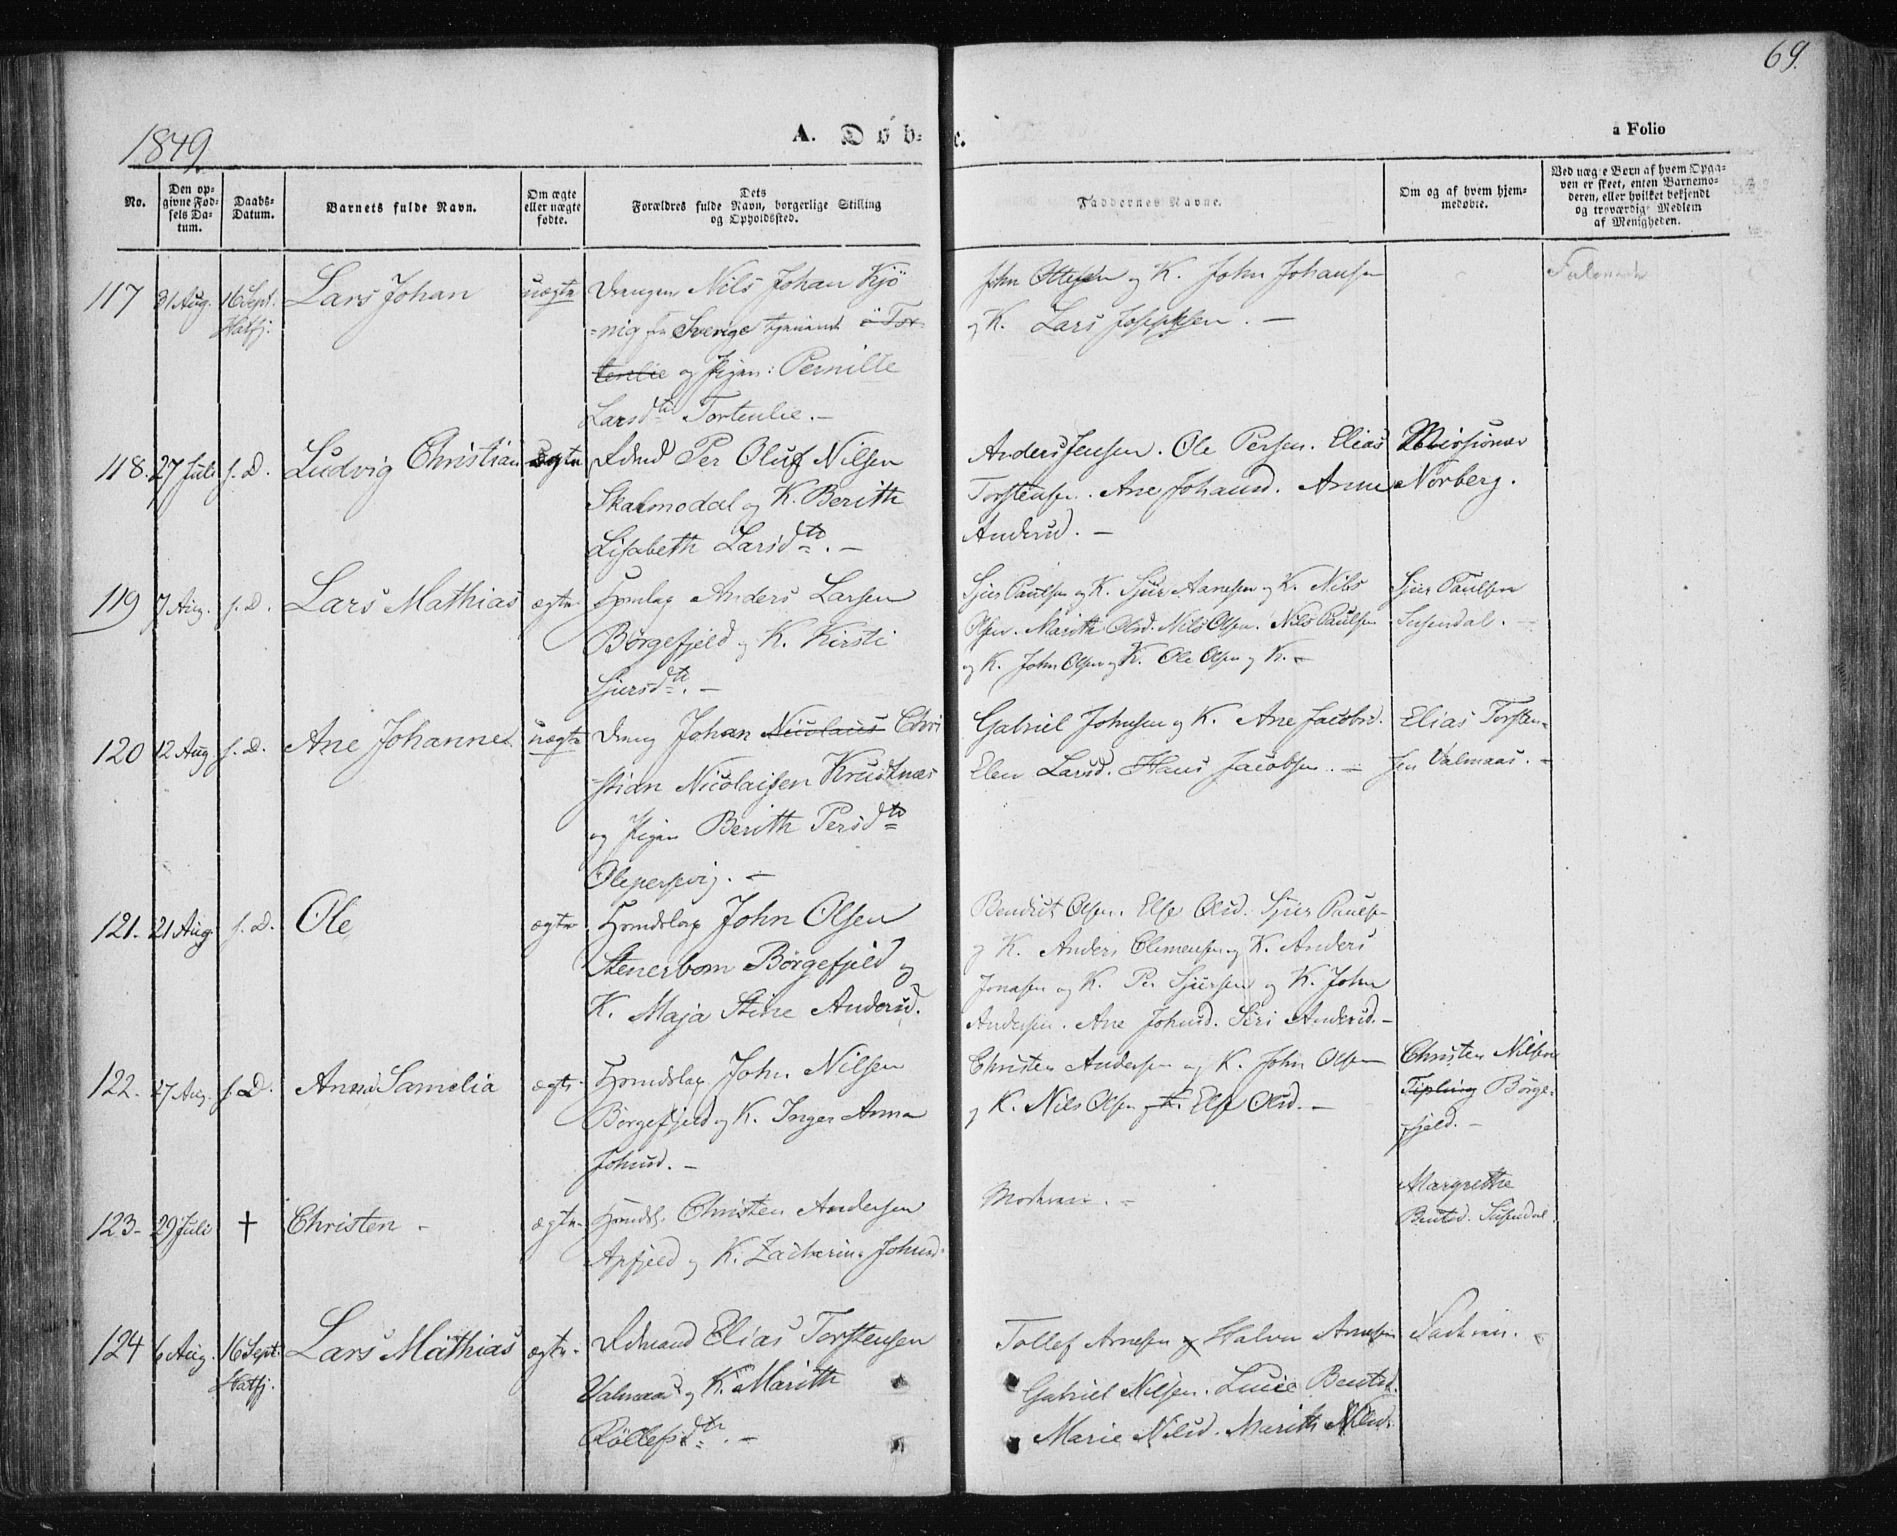 69.
1849.
A. Døb=
e.
a Folio
No.
Den op-
givne Fød-
sels Da-
tum.
Daabs-
Datum.
Barnets fulde Navn.
Om ægte
eller uægte
fødte.
Dets
Forældres fulde Navn, borgerlige Stilling
og Opholdssted.
Faddernes Navne.
Om og af hvem hjem-
medøbt.
Ved uægte Børn af hvem Opga-
ven er skeet, enten Barnemo-
deren, eller hvilket bekjendt
og troværdigt Medlem
af Menigheden.
117 31 Aug. 16 Sept. Hatfj. Lars Johan uægte
Nils Johan Kjö
=nig fra Sverige i Tor-
tenlie og Pigen: Pernille
Larsdtr Tortenlie. —
John Ottesen og K. John Johansen
og K. Lars Josephsen. —
118. 27 Juli s. D. Ludvig Christian ægte
Rdmd Per Oluf Nilsen
Skalmodal og K. Berith
Lisabeth Larsdtr. —
Anders Jensen. Ole Persen. Elias
Torstensen. Ane Johansd. Anne
Andersd. —
Missionær
Norberg.
119 7 Aug. s. D. Lars Mathias ægte
Anders Larsen
Börgefjeld og K. Kirsti
Sjursdtr. —
Sjur Paulsen og K. Sjur Aanesen og K. Nils
Olsen. Marith Olsd. Nils Olsen. Nils Paulsen
og K. John Olsen og K. Ole Olsen og K. —
Sjur Paulsen
Susendal. —
120 12 Aug s. D. Ane Johanne uægte
Dreng Johan Nicolaus Chri
-stian Nicolaisen Krudtnæs
og Pigen Berith Persdtr
Olepersvig. —
Gabriel Johnsen og K. Ane Jacobsd.
Elen Larsd. Hans Jacobsen. —
Elias Torsten-
sen Valmaas. —
121. 21 Aug. s. D. Ole ægte
John Olsen
Stenerbom Börgefjeld og
K. Maja Stine Andersd.
Bendict Olsen. Else Olsd. Sjur Paulsen
og K. Anders Clemensen og K. Anders
Jonasen og K. Per Sjursen og K. John
Andersen. Ane Johnsd. Siri Andersd. —
122. 27 Aug. s. D. Anna Samelia ægte
John Nilsen
Börgefjeld og K. Inger Anna
Johnsd. —
Christen Andersen og K. John Olsen
og K. Nils Olsen og K. Else Olsd. —
Christen Nilsen
Tipling Börge-
fjeld. —
123 29 Juli † Christen — ægte
Christen Andersen
Apfjeld og K. Zacharine Johnsd.
Moderen. —
Margrethe
Bentsd. Susendal.
124 6 Aug. 16 Sept. Hatfj. Lars Mathias ægte
Rdmand Elias Torstensen
Valmaas og K. Marith
Röllefsdtr. —
Tollef Arnesen og Halvor Arnesen
Gabriel Nilsen. Lucie Bentsd.
Marie Nilsd. Marith Nilsd.
Faderen.